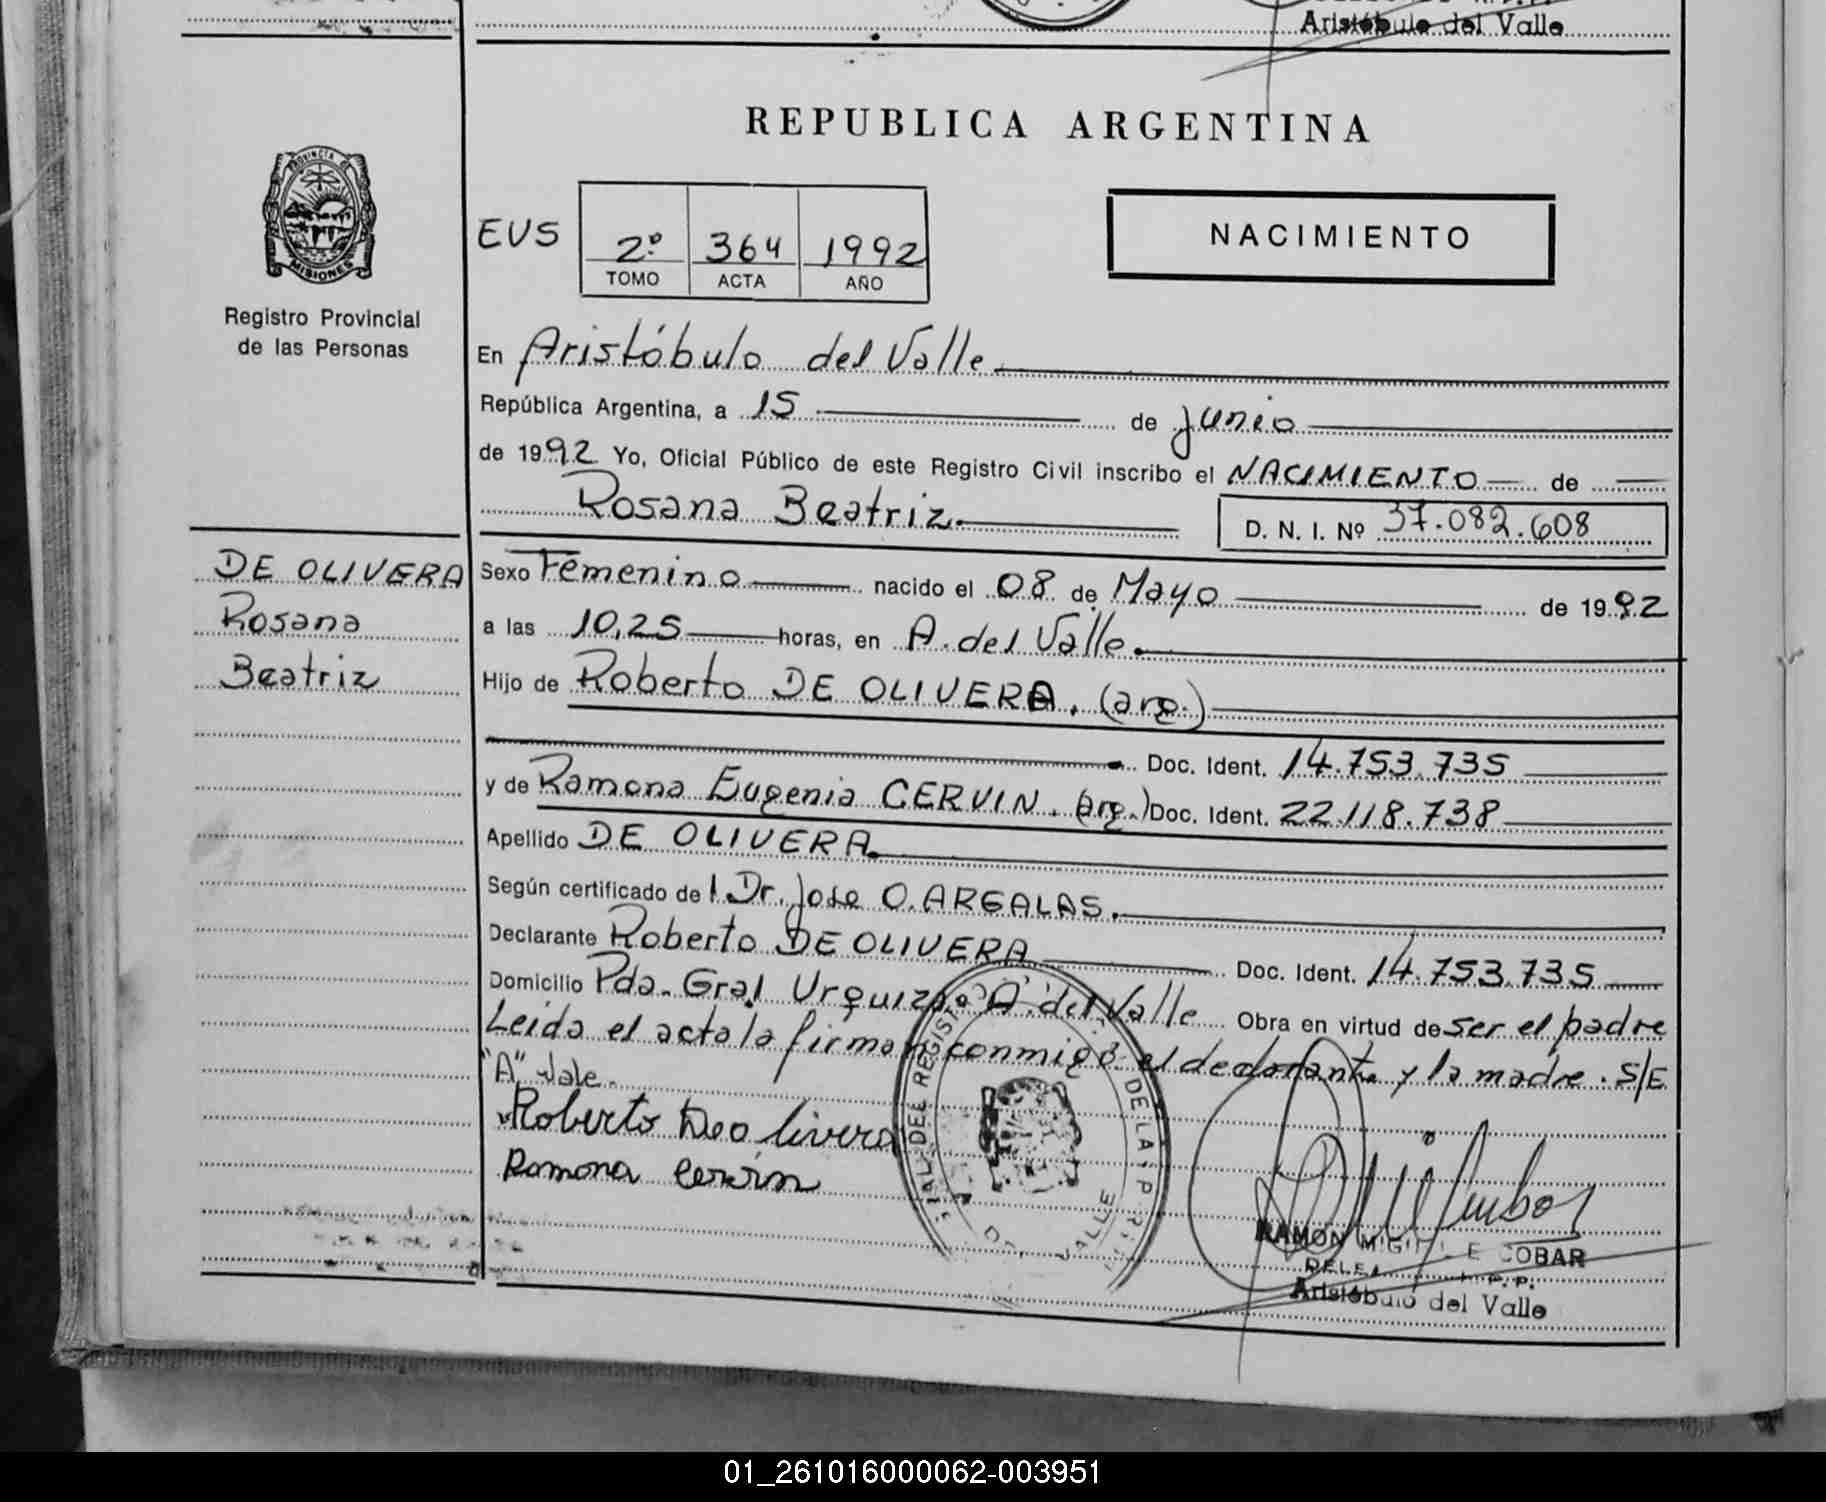 Aristóbulo del Valle
REPUBLICA ARGENTINA
PROVINCIA DE
MISIONES
Registro Provincial
de las Personas
EUS
2º 364 1992
TOMO ACTA AÑO
NACIMIENTO
En Aristóbulo del Valle
República Argentina, a 15 de junio
de 1992 Yo, Oficial Público de este Registro Civil inscribo el NACIMIENTO de
Rosana Beatriz. D. N. I. Nº 37.082.608
DE OLIVERA
Rosana
Beatriz
Sexo Femenino nacido el 08 de Mayo de 1992
a las 10,25 horas, en A. del Valle.
Hijo de Roberto DE OLIVERA. (arg.)
Doc. Ident. 14.753.735
y de Ramona Eugenia CERVIN. (arg.) Doc. Ident. 22.118.738
Apellido DE OLIVERA.
Según certificado de l Dr. Jose O. ARGALAS.
Declarante Roberto DE OLIVERA Doc. Ident. 14.753.735
Domicilio Pdo. Gral Urquiza. A. del Valle Obra en virtud de ser el padre
Leida el acta la firman conmigo el declarante y la madre. S/E
"A" Vale.
Roberto Deolivera
Ramona Cervin
DEL REGISTRO DE LAS P
VALLE
RAMON MIGUEL ESCOBAR
Aristóbulo del Valle
01_261016000062-003951